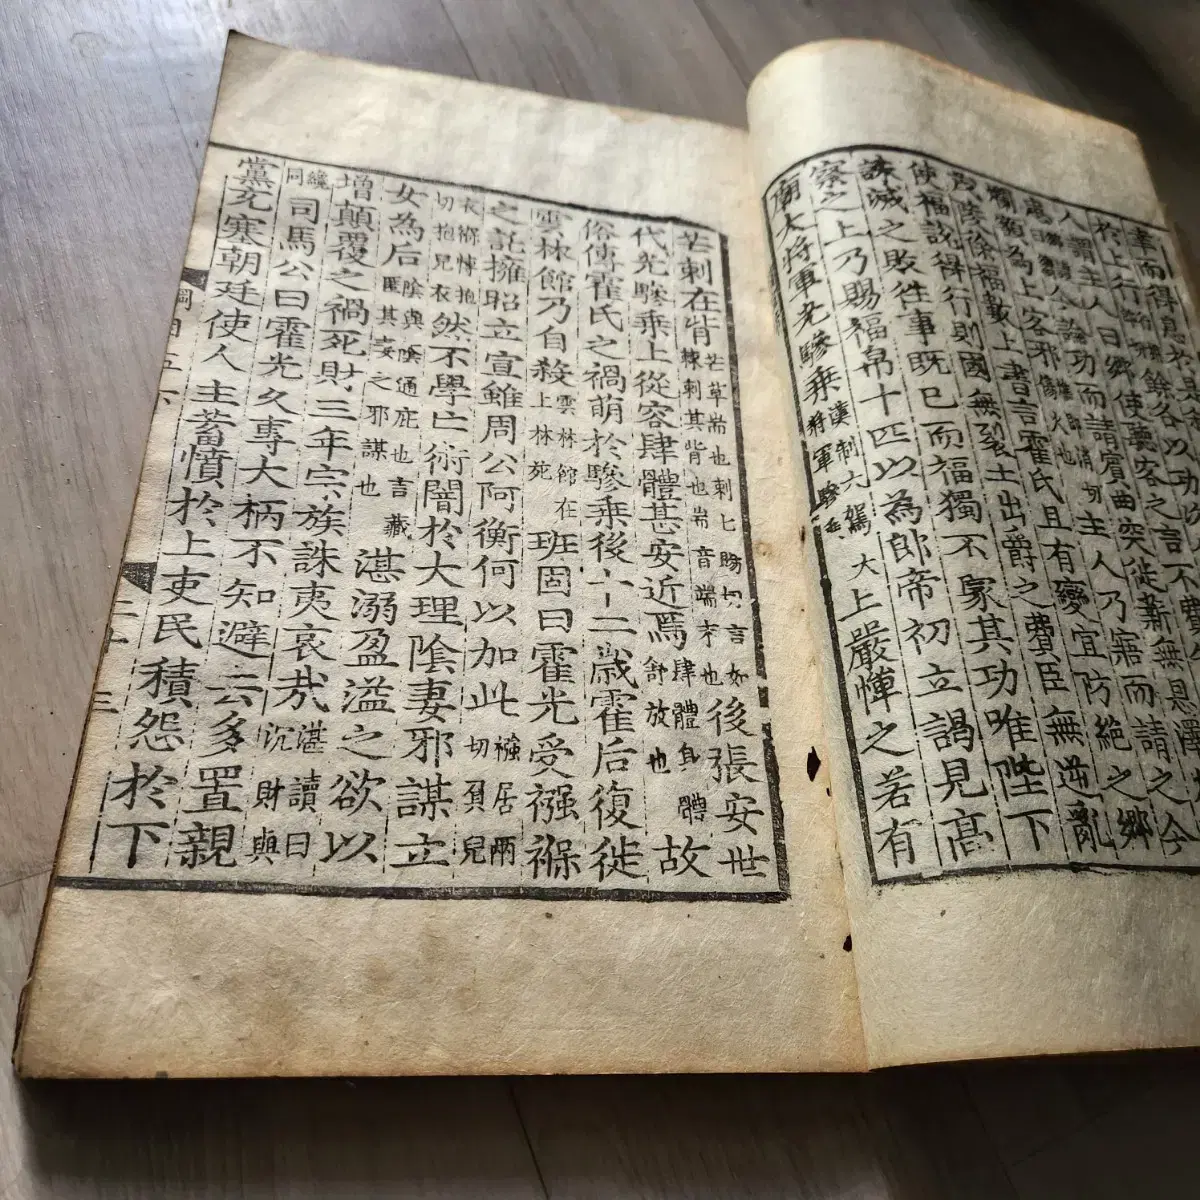 人謂主人曰鄉使聽客之言不費
今論功而請賓曲突徙薪無恩澤
爛額為上客邪主人乃寤而請之今
茂陵徐福數上書言霍氏且有變宜防絶之鄉
使福說得行則國無裂土出爵之費臣無逆亂
誅滅之敗往事既已而福獨不蒙其功唯陛下
察之上乃賜福帛十匹以為郎帝初立謁見高
廟大將軍光驂乘漢制大駕大將軍驂乘上嚴憚之若有
芒刺在背芒草耑也刺七賜切言如棘刺其背也耑音端末也後張安世
代光驂乘上從容肆體甚安近焉肆體身體舒放也故
俗傳霍氏之禍萌於驂乘後十二歲霍后復徙
雲林館乃自殺雲林館在上林苑班固曰霍光受襁褓
之託擁昭立宣雖周公阿衡何以加此襁居兩切負兒
衣褓博抱切抱兒衣然不學亡術闇於大理陰妻邪謀立
女為后陰與蔭通庇也吉藏匿其妻之邪謀也湛溺盈溢之欲以
增顛覆之禍死財三年宗族誅夷哀哉湛讀曰沉財與
纔同司馬公曰霍光久專大柄不知避去多置親
黨充塞朝廷使人主蓄憤於上吏民積怨於下
綱目五六
二十三